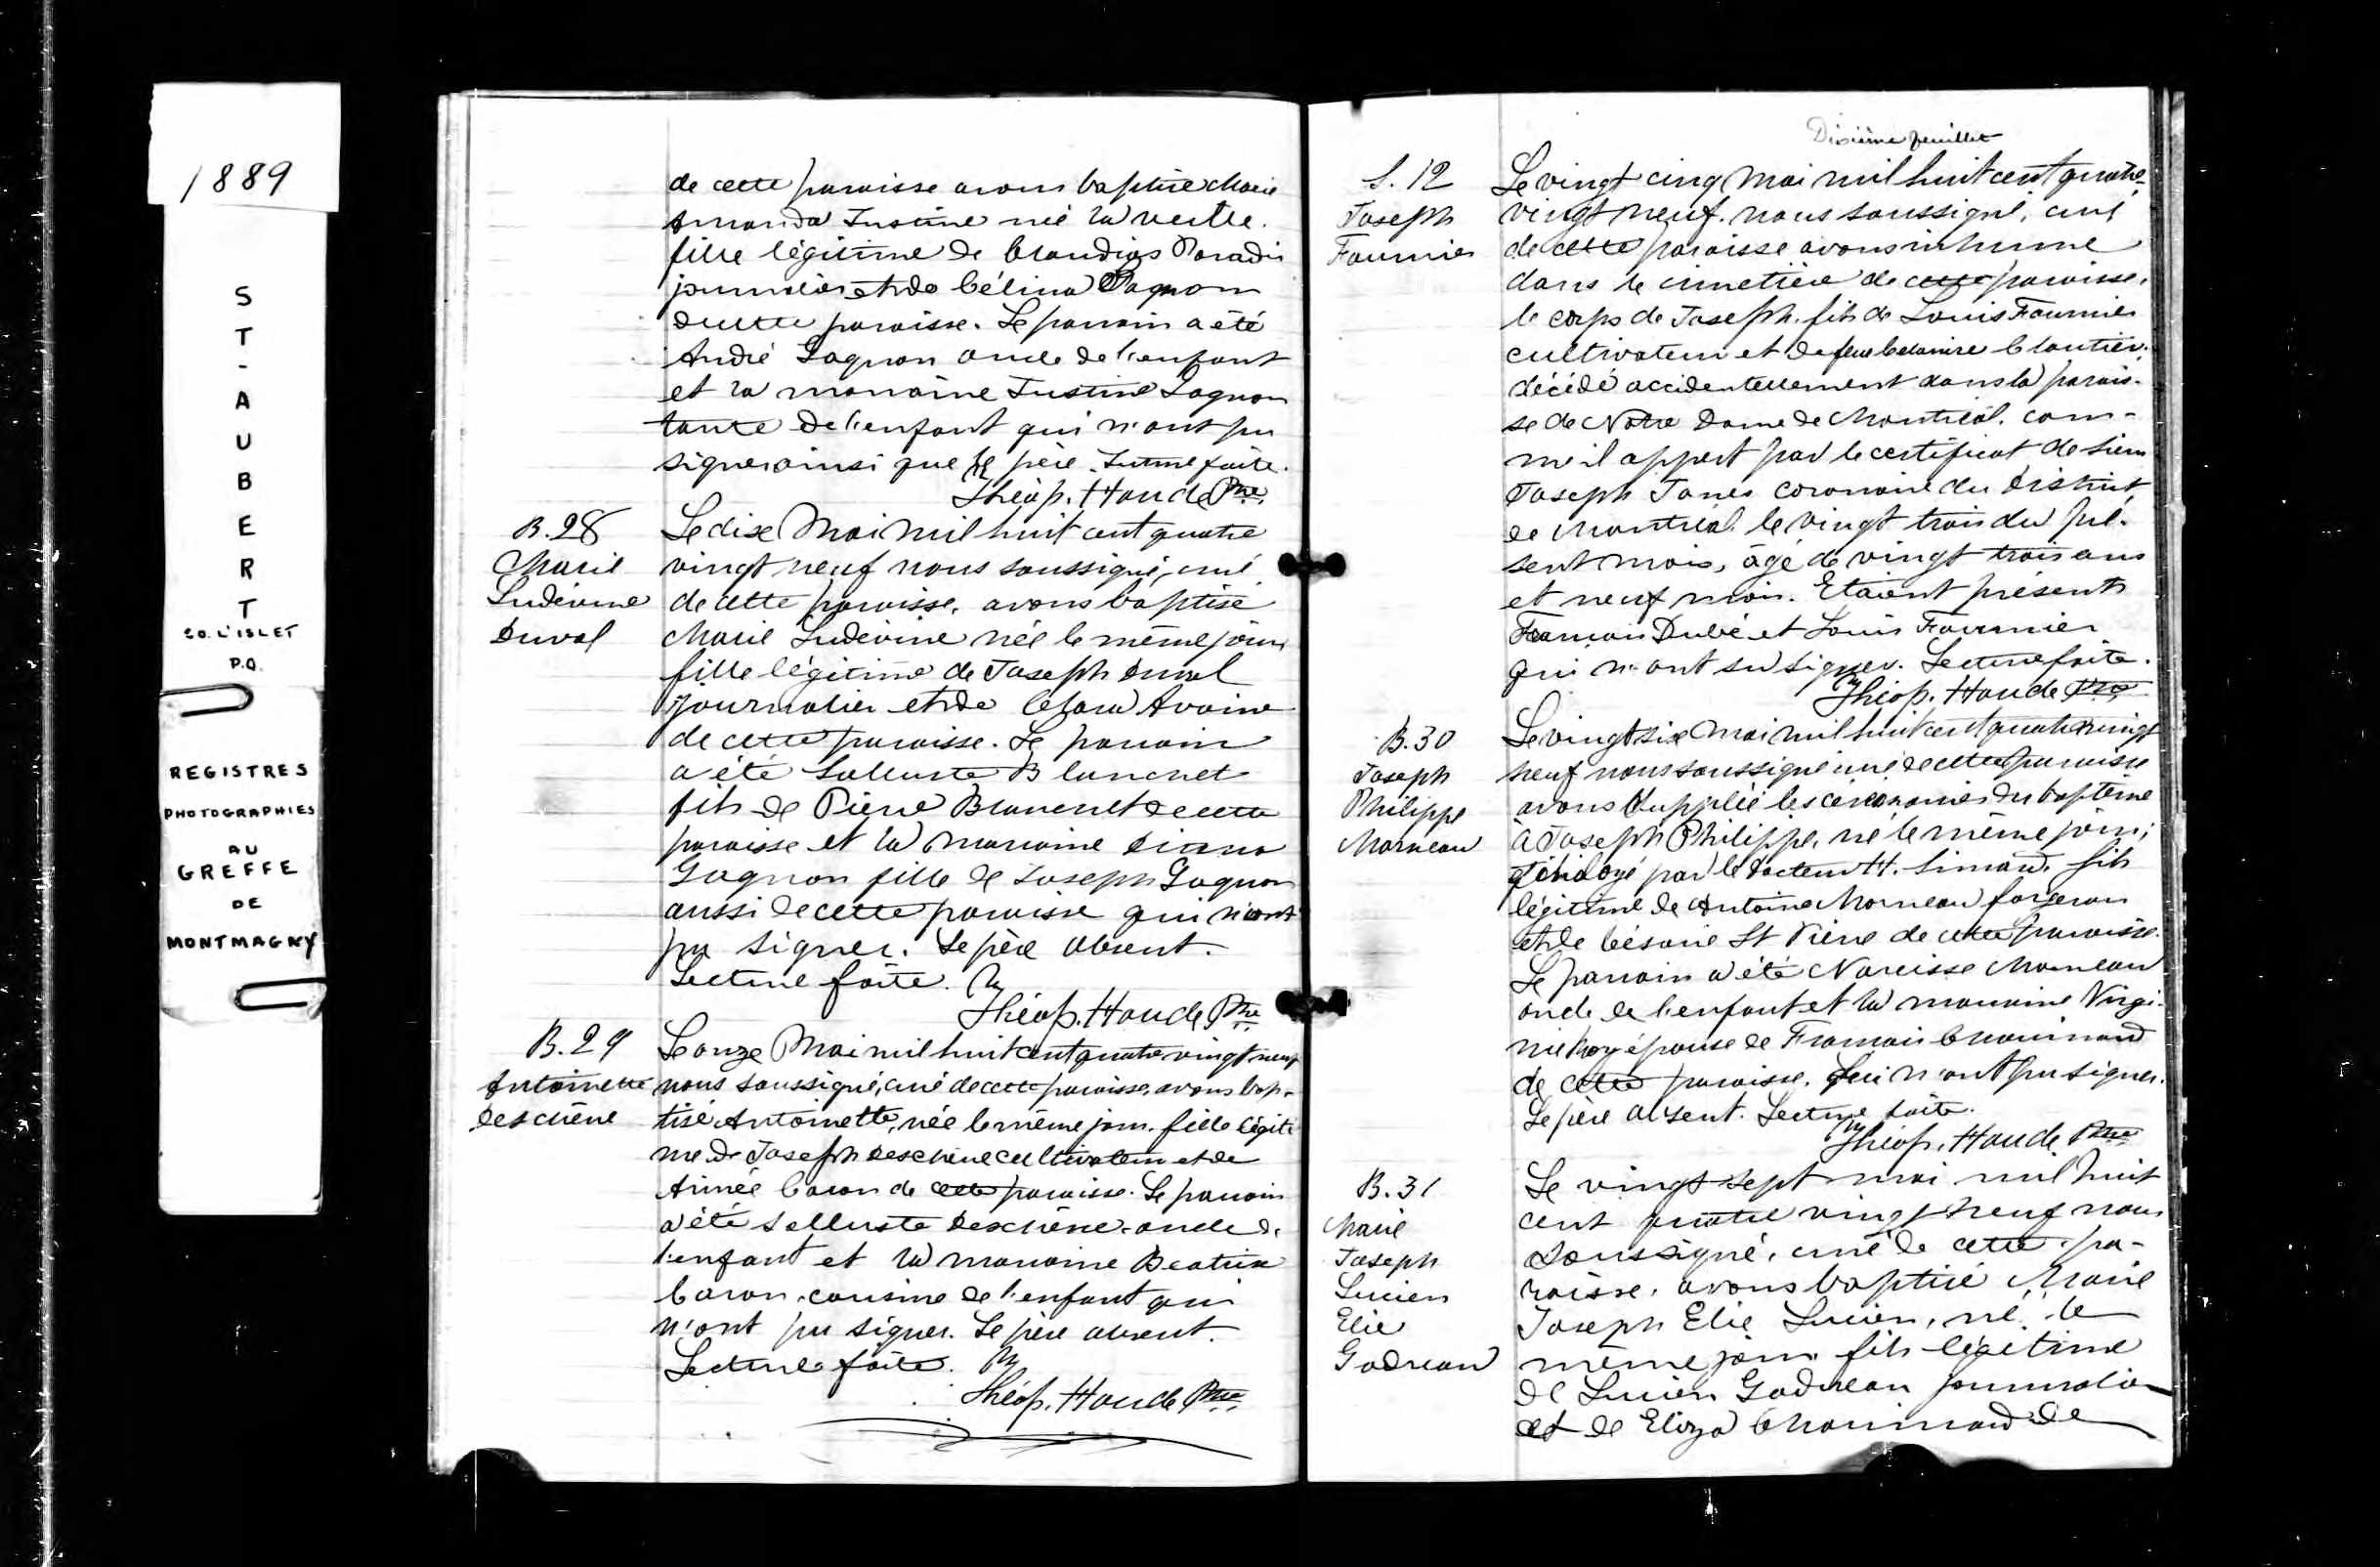 1889
ST-AUBERT
CO. L'ISLET
P.Q.
REGISTRES
PHOTOGRAPHIES
AU
GREFFE
DE
MONTMAGNY
de cette paroisse avons baptisé Marie
Amanda Justine née la veille.
fille légitime de Claudias Paradis
journalier et de Célina Gagnon
de cette paroisse. Le parrain a été
André Gagnon oncle de l'enfant
et la marraine Justine Gagnon
tante de l'enfant qui n'ont pu
signer ainsi que le père. Lecture faite.
Théop. Houde Ptre
B. 28
Marie
Ludivine
Duval
Le dix Mai mil huit cent quatre
vingt neuf nous soussigné, curé
de cette paroisse, avons baptisé
Marie Ludivine née le même jour
fille légitime de Joseph Duval
journalier et de Clara Avoine
de cette paroisse. Le parrain
a été Salluste Blanchet
fils de Pierre Blanchet de cette
paroisse et la marraine Diana
Gagnon fille de Joseph Gagnon
aussi de cette paroisse qui n'ont
pu signer. Le père absent.
Lecture faite.
Théop. Houde Ptre
B. 29
Antoinette
Deschêne
Le onze Mai mil huit cent quatre vingt neuf
nous soussigné, curé de cette paroisse, avons bap-
tisé Antoinette, née le même jour. fille légiti
me de Joseph Deschêne cultivateur et de
Aimée Caron de cette paroisse. Le parrain
a été Salluste Deschêne oncle de
l'enfant et la marraine Beatrix
Caron, cousine de l'enfant qui
n'ont pu signer. Le père absent.
Lecture faite.
Théop. Houde Ptre
Dixième feuillet
S. 12
Joseph
Fournier
Le vingt cinq Mai mil huit cent quatre-
vingt neuf. nous soussigné, curé
de cette paroisse avons inhumé
dans le cimetière de cette paroisse,
le corps de Joseph, fils de Louis Fournier
cultivateur et de feue Cloutier.
décédé accidentellement dans la parois-
se de Notre Dame de Montréal. com-
me il appert par le certificat de Sieur
Joseph Jones coronaire du District
de Montréal le vingt trois du pré-
sent mois, âgé de vingt trois ans
et neuf mois. Etaient présents
François Dubé et Louis Fournier
qui n'ont su signer. Lecture faite.
Théop. Houde Ptre
B. 30
Joseph
Philippe
Morneau
Le vingt six Mai mil huit cent quatre vingt
neuf nous soussigné curé de cette paroisse
avons suppléé les cérémonies du baptême
à Joseph Philippe, né le même jour,
et ondoyé par le docteur H. Simard, fils
légitime de Antoine Morneau forgeron
et de Césarie St Pierre de cette paroisse.
Le parrain a été Narcisse Morneau
oncle de l'enfant et la marraine Virgi-
nie Roy épouse de François Chouinard
de cette paroisse. Qui n'ont pu signer.
Le père absent. Lecture faite.
Théop. Houde Ptre
B. 31
Marie
Joseph
Lucien
Elie
Godreau
Le vingt sept mai mil huit
cent quatre vingt neuf nous
soussigné, curé de cette pa-
roisse, avons baptisé Marie
Joseph Elie Lucien, né le
même jour fils légitime
de Lucien Godreau journalier
et de Eliza Chouinard de